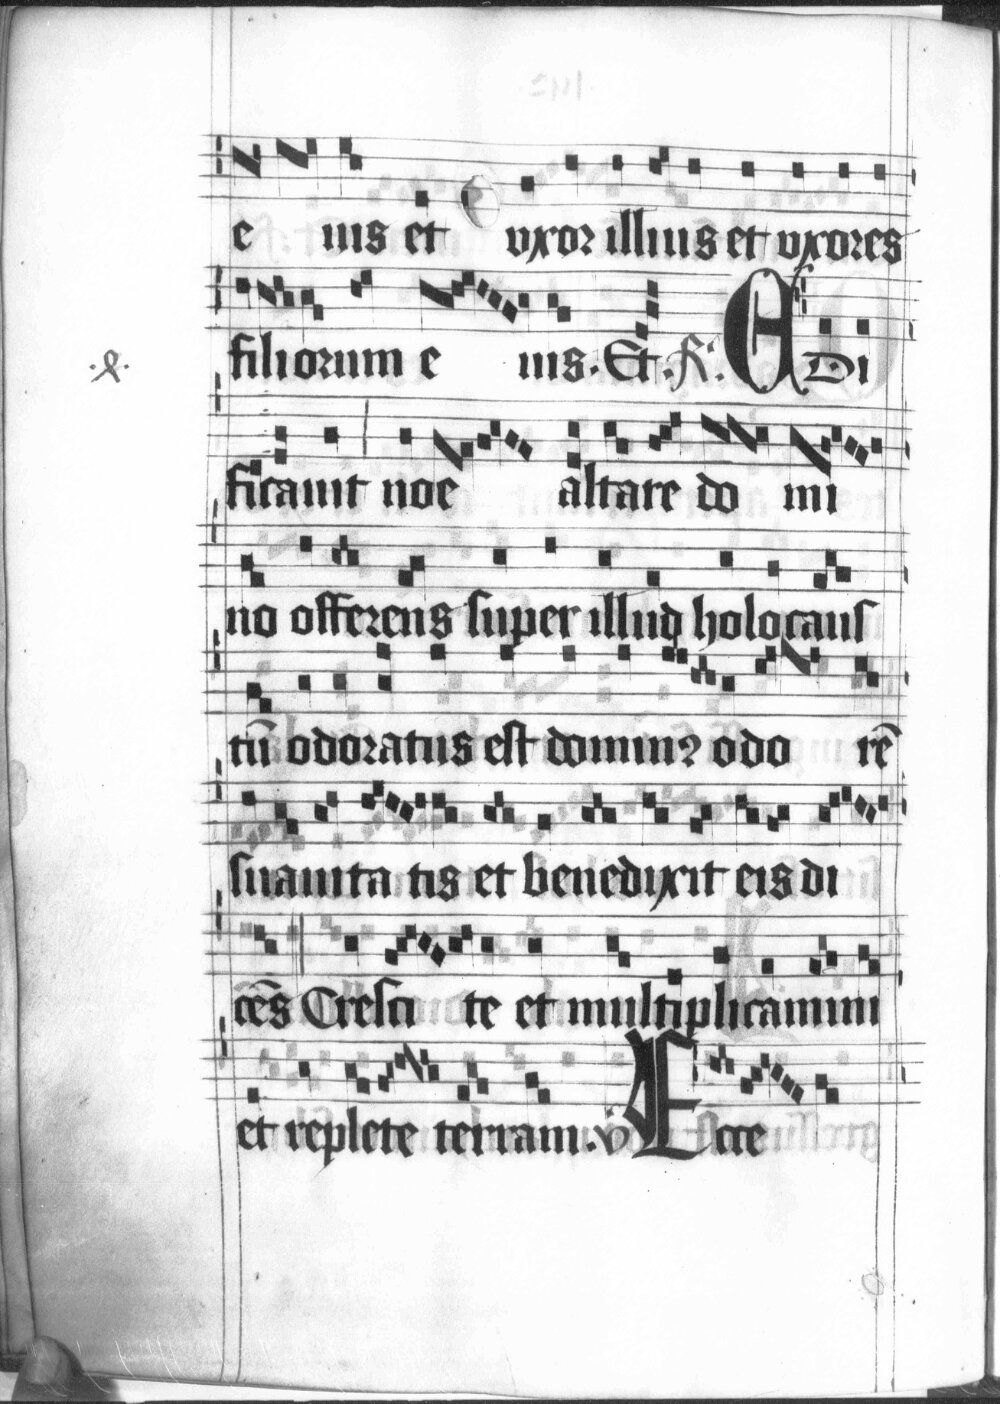 e ius et vxor illius et vxores
filiorum e ius. Et. R. EDi
ficauit noe altare do mi
no offerens super illud holocaus
tū odoratus est dominꝰ odo rē
suauita tis et benedixit eis di
cēs Cresci te et multiplicamini
et replete terram. v Ecce